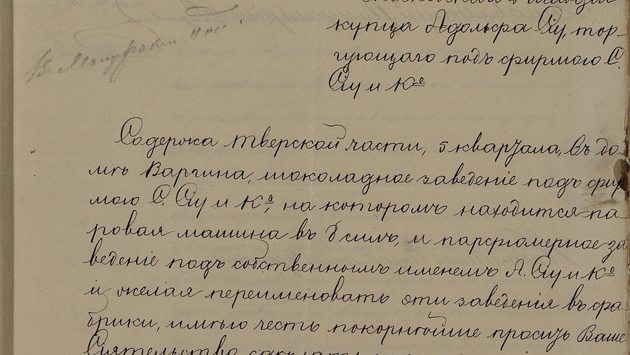 купца Адольфа Сіу, тор-
гующаго подъ фирмою С.
Сіу и Кº
Содержа Тверской части, 5 квартала, въ до-
мѣ Варгина, шоколадное заведеніе подъ фир-
мою С. Сіу и Кº, на которомъ находится па-
ровая машина въ 6 силъ, и парфюмерное за-
ведение подъ собственнымъ именемъ А. Сіу и Кº
и желая переименовать эти заведенія въ фа-
брики, имѣю честь покорнѣйше просить Ваше
Сіятельство